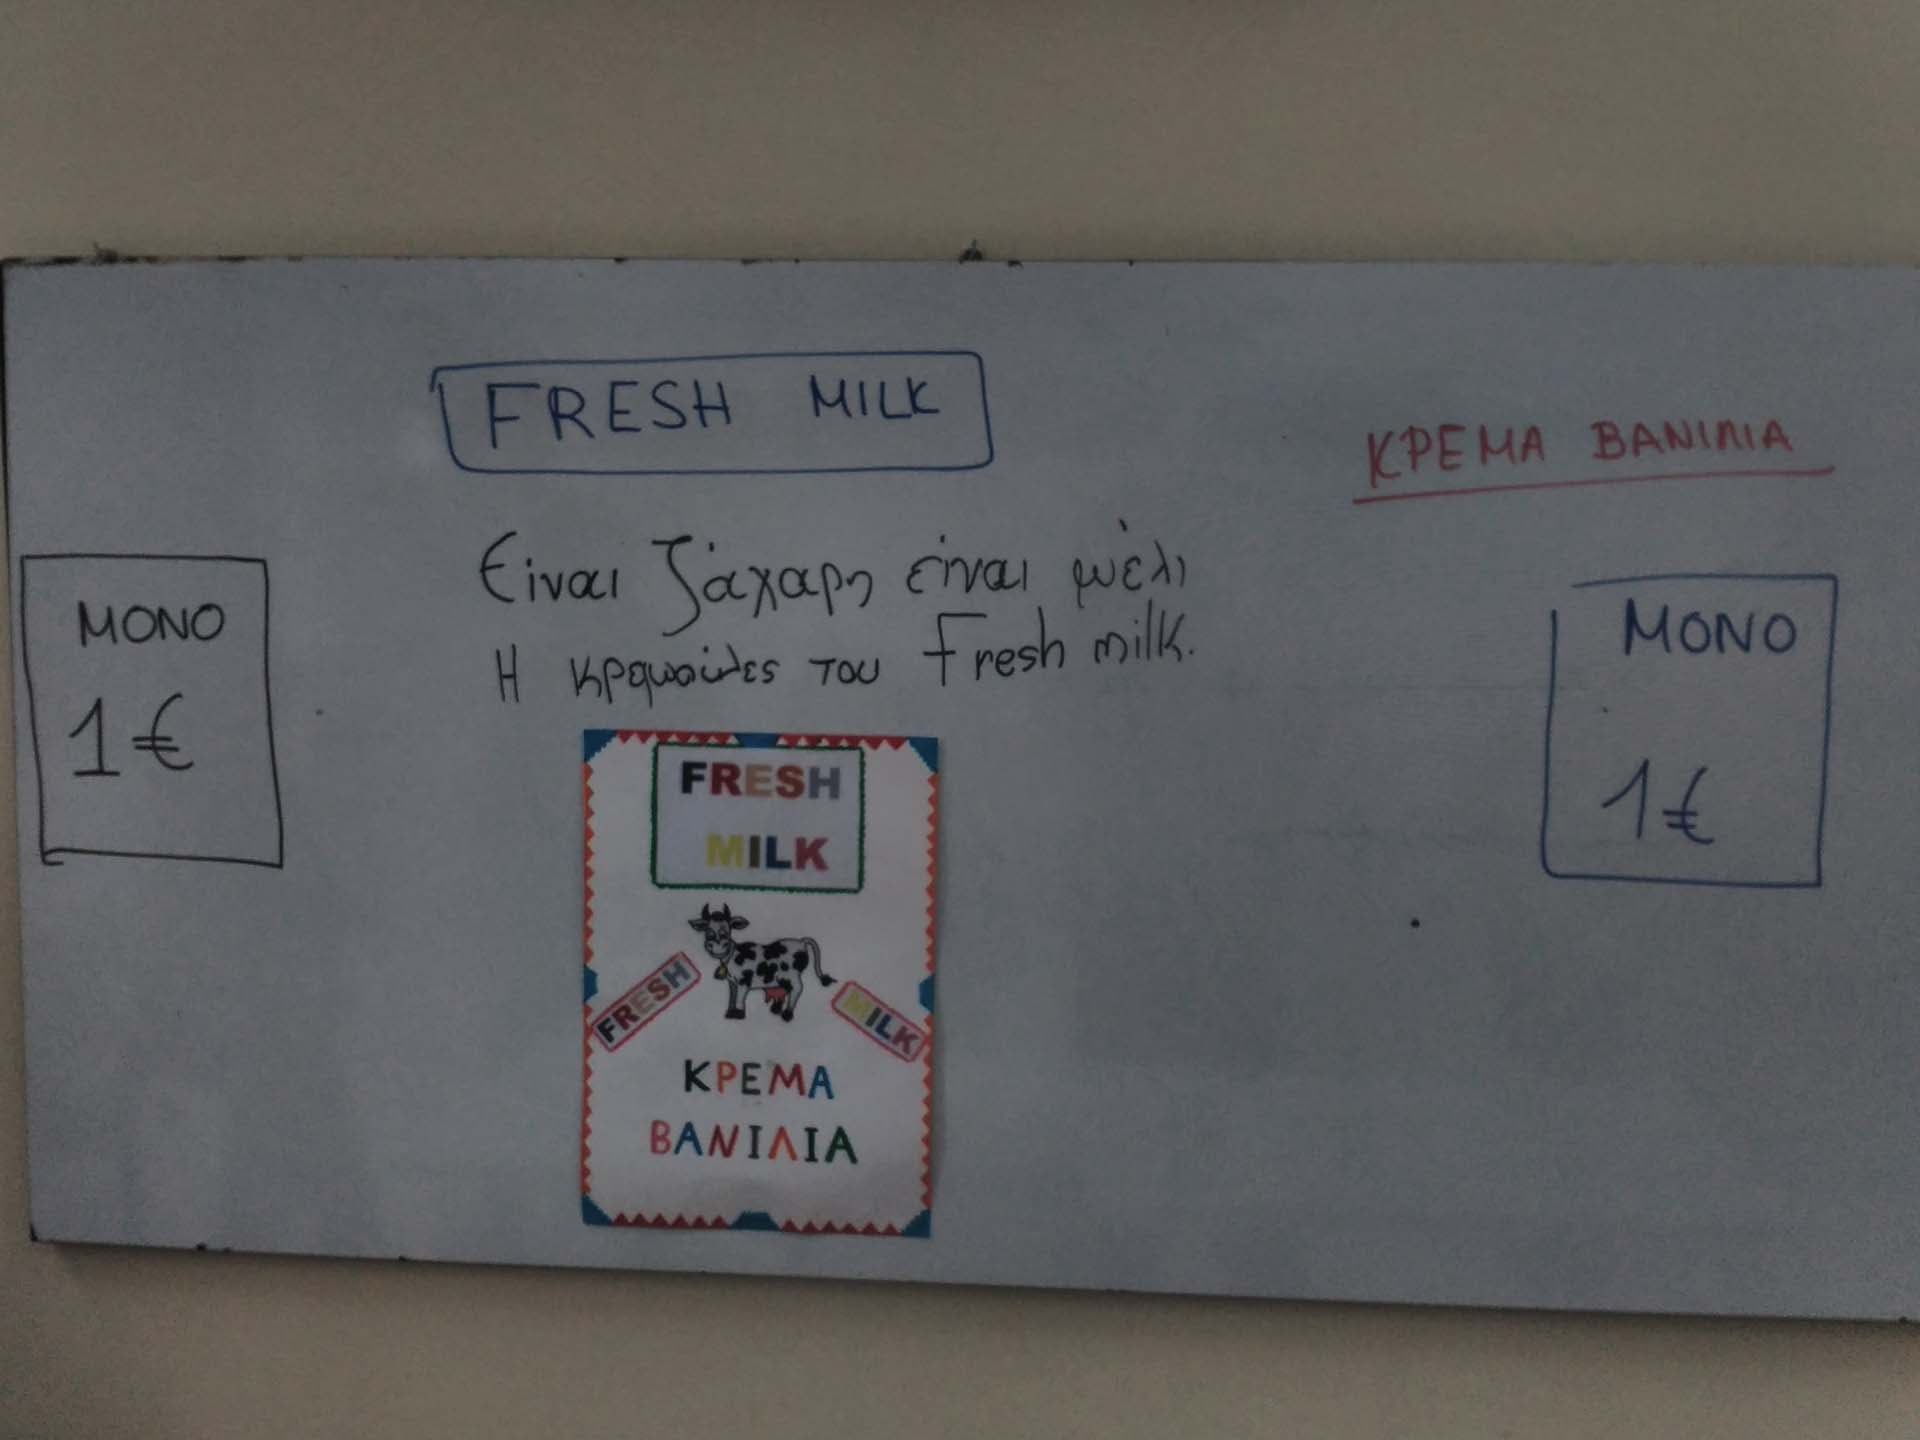 FRESH MILK
ΚΡΕΜΑ ΒΑΝΙΛΙΑ
Είναι ζάχαρη είναι μέλι
Η κρεμούλες του Fresh milk.
ΜΟΝΟ
1€
ΜΟΝΟ
1€
FRESH
MILK
FRESH
MILK
ΚΡΕΜΑ
ΒΑΝΙΛΙΑ